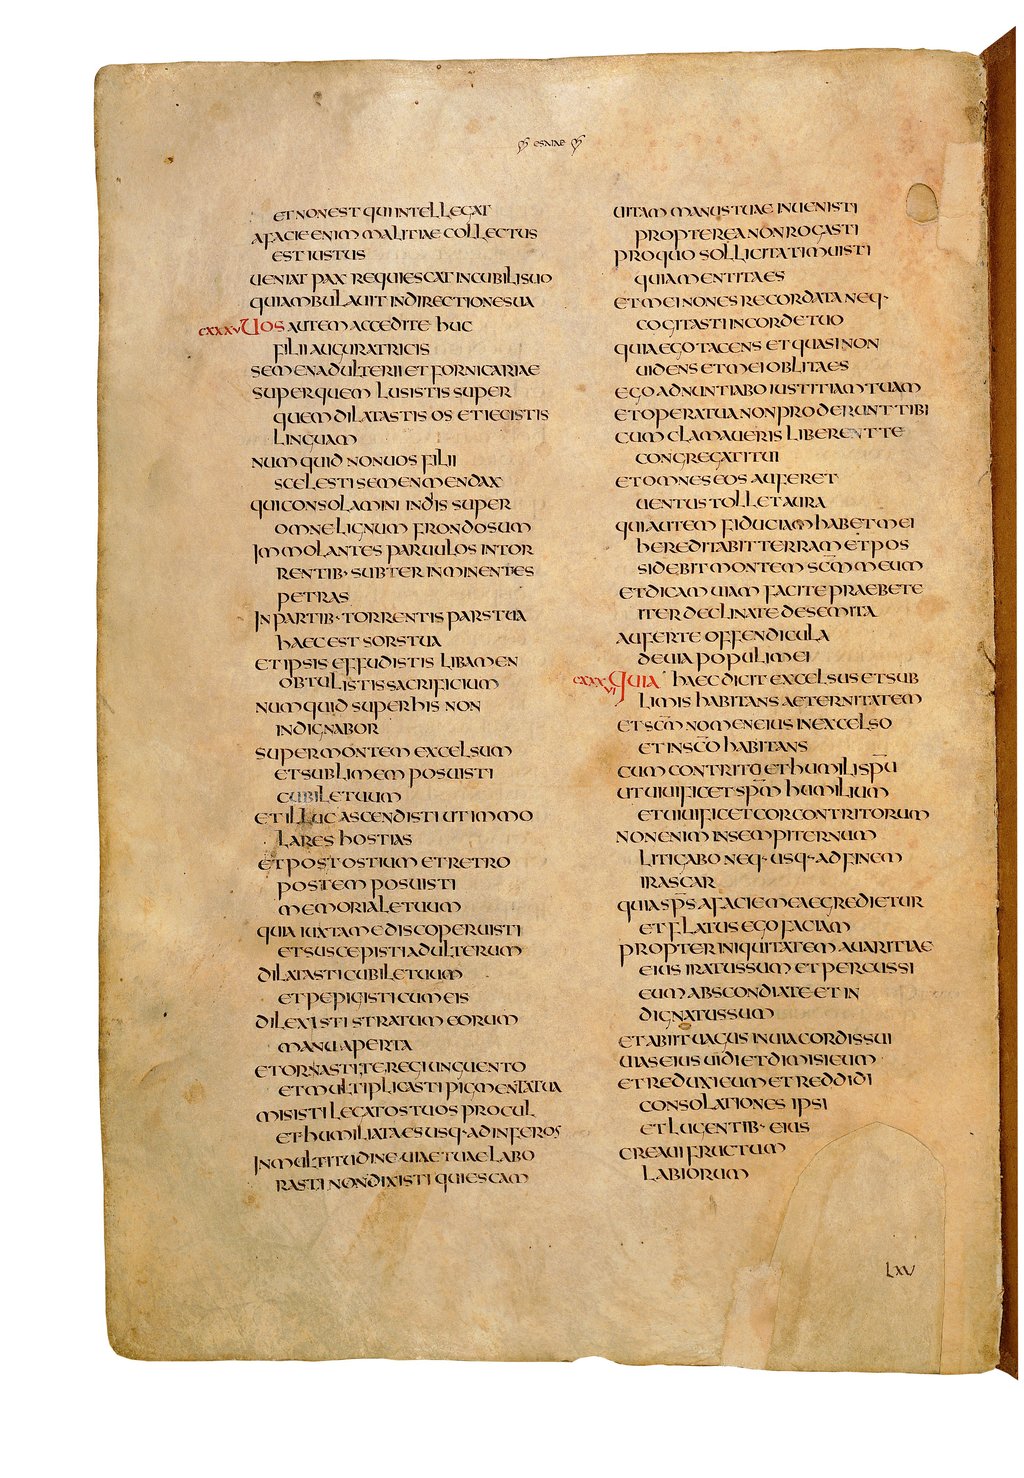 ESAIAE
ET NON EST QUI INTELLEGAT
A FACIE ENIM MALITIAE COLLECTUS
EST IUSTUS
UENIAT PAX REQUIESCAT IN CUBILI SUO
QUI AMBULAUIT IN DIRECTIONE SUA
CXXXV UOS AUTEM ACCEDITE HUC
FILII AUGURATRICIS
SEMEN ADULTERII ET FORNICARIAE
SUPER QUEM LUSISTIS SUPER
QUEM DILATASTIS OS ET IECISTIS
LINGUAM
NUMQUID NON UOS FILII
SCELESTI SEMEN MENDAX
QUI CONSOLAMINI IN DIS SUPER
OMNE LIGNUM FRONDOSUM
IMMOLANTES PARUULOS IN TOR
RENTIB· SUBTER INMINENTES
PETRAS
IN PARTIB· TORRENTIS PARS TUA
HAEC EST SORS TUA
ET IPSIS EFFUDISTIS LIBAMEN
OBTULISTIS SACRIFICIUM
NUMQUID SUPER HIS NON
INDIGNABOR
SUPER MONTEM EXCELSUM
ET SUBLIMEM POSUISTI
CUBILE TUUM
ET ILLUC ASCENDISTI UT IMMO
LARES HOSTIAS
ET POST OSTIUM ET RETRO
POSTEM POSUISTI
MEMORIALE TUUM
QUIA IUXTA ME DISCOPERUISTI
ET SUSCEPISTI ADULTERUM
DILATASTI CUBILE TUUM
ET PEPIGISTI CUM EIS
DILEXISTI STRATUM EORUM
MANU APERTA
ET ORNASTI TE REGI UNGUENTO
ET MULTIPLICASTI PIGMENTA TUA
MISISTI LEGATOS TUOS PROCUL
ET HUMILIATA ES USQ· AD INFEROS
IN MULTITUDINE UIAE TUAE LABO
RASTI NON DIXISTI QUIESCAM
UITAM MANUS TUAE INUENISTI
PROPTEREA NON ROGASTI
PRO QUO SOLLICITA TIMUISTI
QUIA MENTITA ES
ET MEI NON ES RECORDATA NEQ·
COGITASTI IN CORDE TUO
QUIA EGO TACENS ET QUASI NON
UIDENS ET MEI OBLITA ES
EGO ADNUNTIABO IUSTITIAM TUAM
ET OPERA TUA NON PRODERUNT TIBI
CUM CLAMAUERIS LIBERENT TE
CONGREGATI TUI
ET OMNES EOS AUFERET
UENTUS TOLLET AURA
QUI AUTEM FIDUCIAM HABET MEI
HEREDITABIT TERRAM ET POS
SIDEBIT MONTEM SC̅M MEUM
ET DICAM UIAM FACITE PRAEBETE
ITER DECLINATE DE SEMITA
AUFERTE OFFENDICULA
DE UIA POPULI MEI
CXXXVI QUIA HAEC DICIT EXCELSUS ET SUB
LIMIS HABITANS AETERNITATEM
ET SC̅M NOMEN EIUS IN EXCELSO
ET IN SC̅O HABITANS
CUM CONTRITO ET HUMILI SP̅U
UT UIUIFICET SP̅M HUMILIUM
ET UIUIFICET COR CONTRITORUM
NON ENIM IN SEMPITERNUM
LITIGABO NEQ· USQ· AD FINEM
IRASCAR
QUIA SP̅S A FACIE MEA EGREDIETUR
ET FLATUS EGO FACIAM
PROPTER INIQUITATEM AUARITIAE
EIUS IRATUS SUM ET PERCUSSI
EUM ABSCONDI A TE ET IN
DIGNATUS SUM
ET ABIIT UAGUS IN UIA CORDIS SUI
UIAS EIUS UIDI ET DIMISI EUM
ET REDUXI EUM ET REDDIDI
CONSOLATIONES IPSI
ET LUGENTIB· EIUS
CREAUI FRUCTUM
LABIORUM
LXV